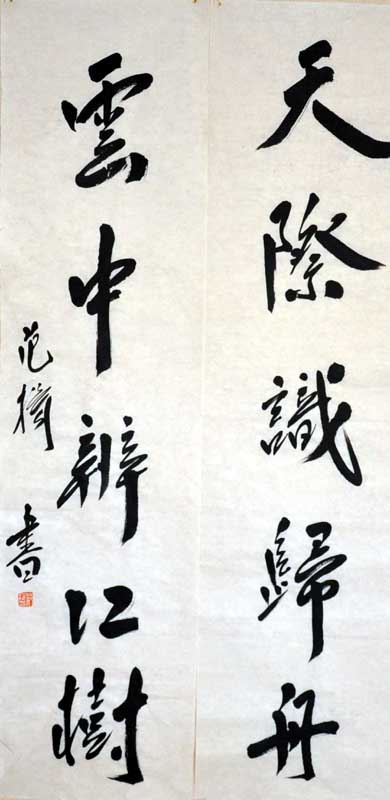 天際識歸舟
雲中辨江樹
范 書